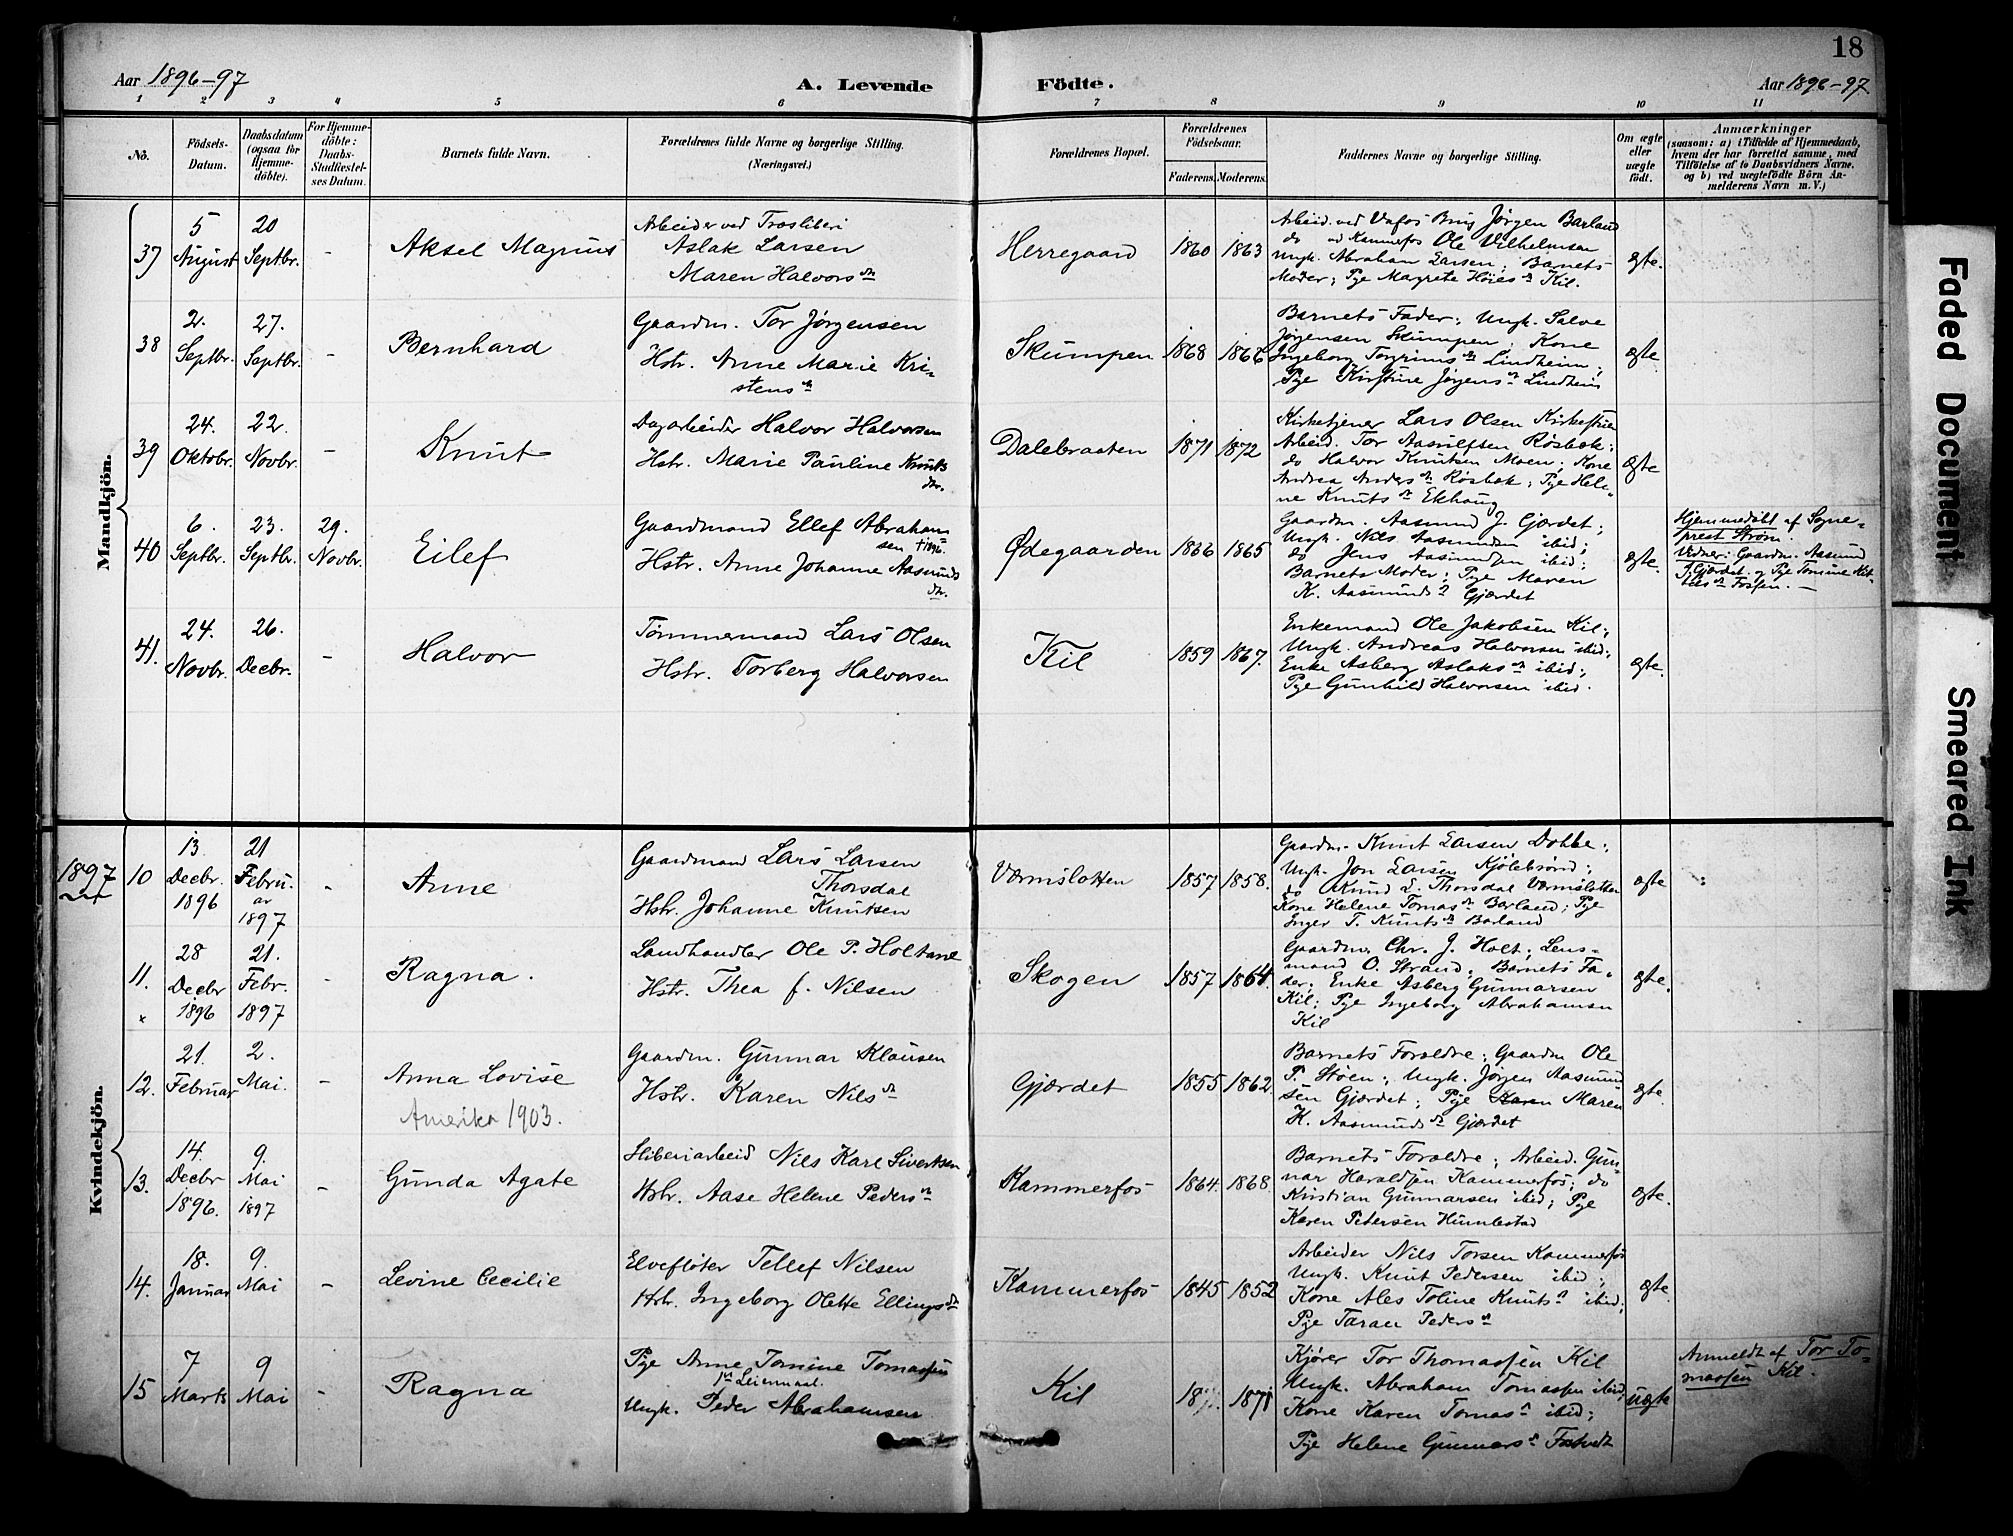 18
Aar 1896-97
A. Levende Födte.
Aar 1896-97
1 2 3 4 5 6 7 8 9 10 11
No.
Födsels-Datum.
Daabsdatum (ogsaa for Hjemme-döbte).
For Hjemme-döbte: Daabs-Stadfæstel-ses Datum.
Barnets fulde Navn.
Forældrenes fulde Navne og borgerlige Stilling. (Næringsvei.)
Forældrenes Bopæl.
Forældrenes Födselsaar.
Faderens. Moderens.
Faddernes Navne og borgerlige Stilling.
Om ægte eller uægte födt.
Anmærkninger
(saasom: a) i Tilfælde af Hjemmedaab, hvem der har forrettet samme, med Tilföielse af to Daabsvidners Navne. og b) ved uægtefödte Börn An-melderens Navn m. V.)
Mandkjön.
37
5 August
20 Septbr.
-
Aksel Magnus
Arbeider ved Træsliberi
Aslak Larsen
Maren Halvorsdr
Herregaard
1860 1863
Arbeid. ved Vafos Brug Jørgen Barland
do ved Kammerfos Ole Vilhelmsen
Ungk. Abraham Larsen; Barnets
Moder; Pge Magrete Kil.
ægte.
38
2. Septbr.
27. Septbr.
-
Bernhard
Gaardm. Tor Jørgensen
Hstr. Anne Marie Kri-
stensdr
Skumpen
1868 1866
Barnets Fader; Ungk. Salve
Jørgensen Skumpen; Kone
Ingeborg Torgrimsdr Lindheim;
Pge Kirstine Jørgensdr Lindheim
ægte
39
24. Oktobr.
22. Novbr.
-
Knut
Dagarbeider Halvor Halvorsen
Hstr. Marie Pauline Knuts
dr.
Dalebraaten
1871 1872
Kirketjener Lars Olsen
Arbeid. Tor Aasulfsen Røsbak;
do Halvor Knutsen Moen; Kone
Andrea Andersdr Røsbak; Pge Hele-
ne Knutsdr Ekhaug
ægte
40
6. Septbr.
23. Septbr.
29. Novbr.
Eilef
Gaardmand Ellef Abraham-
sen †1896.
Hstr. Anne Johanne Aasmunds
dr.
Ødegaarden
1866 1865
Gaardm. Aasmund J. Gjærdet;
Ungk. Nils Aasmundsen ibid;
do Jens Aasmundsen ibid;
Barnets Moder; Pge Maren
K. Aasmundsdr Gjærdet
ægte.
Hjemmedøbt af Sogne-
prest Strøm.
Vidner: Gaardm. Aasmund
J. Gjærdet og Pge Tomine Kit-
telsdr Fossen. —
41.
24. Novbr.
26. Decbr.
-
Halvor
Tømmermand Lars Olsen
Hstr. Torberg Halvorsen
Kil
1859 1867.
Enkemand Ole Jakobsen Kil;
Ungk. Andreas Halvorsen ibid;
Enke Asberg Aslaksdr ibid;
Pge Gunhild Halvorsen ibid.
ægte.
1897
Kvindekjön.
10
13. Decbr. 1896
21 Febru-ar 1897
-
Anne
Gaardmand Lars Larsen
Thorsdal
Hstr. Johanne Knutsen
Værmslotten
1857 1858.
Gaardm. Knut Larsen Dobbe;
Ungk. Jon Larsen Kjølebrønd;
do Knud L. Thorsdal Værmslotten
Kone Helene Tomasdr Barland; Pge
Inger T. Knutsdr Barland
ægte
11.
28 Decbr 1896
21. Febr. 1897
-
Ragna.
Landhandler Ole P. Holtane
Hstr. Thea f. Nilsen
Skogen
1857 1864.
Gaardm. Chr. J. Holt; Lens-
mand O. Strand; Barnets Fa-
der; Enke Asberg Gunnarsen
Kil; Pge Ingeborg Abrahamsen
Kil
ægte.
12.
21. Februar
2. Mai.
-
Anna Lovise
Amerika 1903.
Gaardm. Gunnar Klausen
Hstr. Karen Nilsdr
Gjærdet
1855 1862.
Barnets Forældre; Gaardm Ole
P. Støen; Ungk. Jørgen Aasmund-
sen Gjærdet; Pge Karen Maren
K. Aasmundsdr Gjærdet
ægte.
13.
14. Decbr 1896.
9. Mai 1897
-
Gunda Agate
Sliberiarbeid Nils Karl Sivertsen
Hstr. Aase Helene Pedersdr
Kammerfos
1864. 1868.
Barnets Forældre; Arbeid. Gun-
nar Haraldsen Kammerfos; do
Kristian Gunnarsen ibid; Pge
Karen Petersen Humlestad
ægte.
14.
18. Januar
9. Mai
-
Levine Cecilie
Elvefløter Tellef Nilsen
Hstr. Ingeborg Olette Ellingsdr
Kammerfos
1845 1852
Arbeider Nils Torsen Kammerfos
Ungk. Knut Pedersen ibid;
Kone Ales Toline Knutsdr ibid;
Pge Taran Pedersdr
ægte.
15
7 Marts
9 Mai
-
Ragna
Pge Anne Tomine Tomassen
1ste Leiermaal.
Ungk. Peder Abrahamsen
Kil
1871
Kjører Tor Thomassen Kil
Ungk. Abraham Tomassen ibid;
Kone Karen Tomasdr ibid;
Pge Helene Gunnarsdr
uægte
Anmeldt af Tor To-
massen Kil.
Faded Document
Smeared Ink